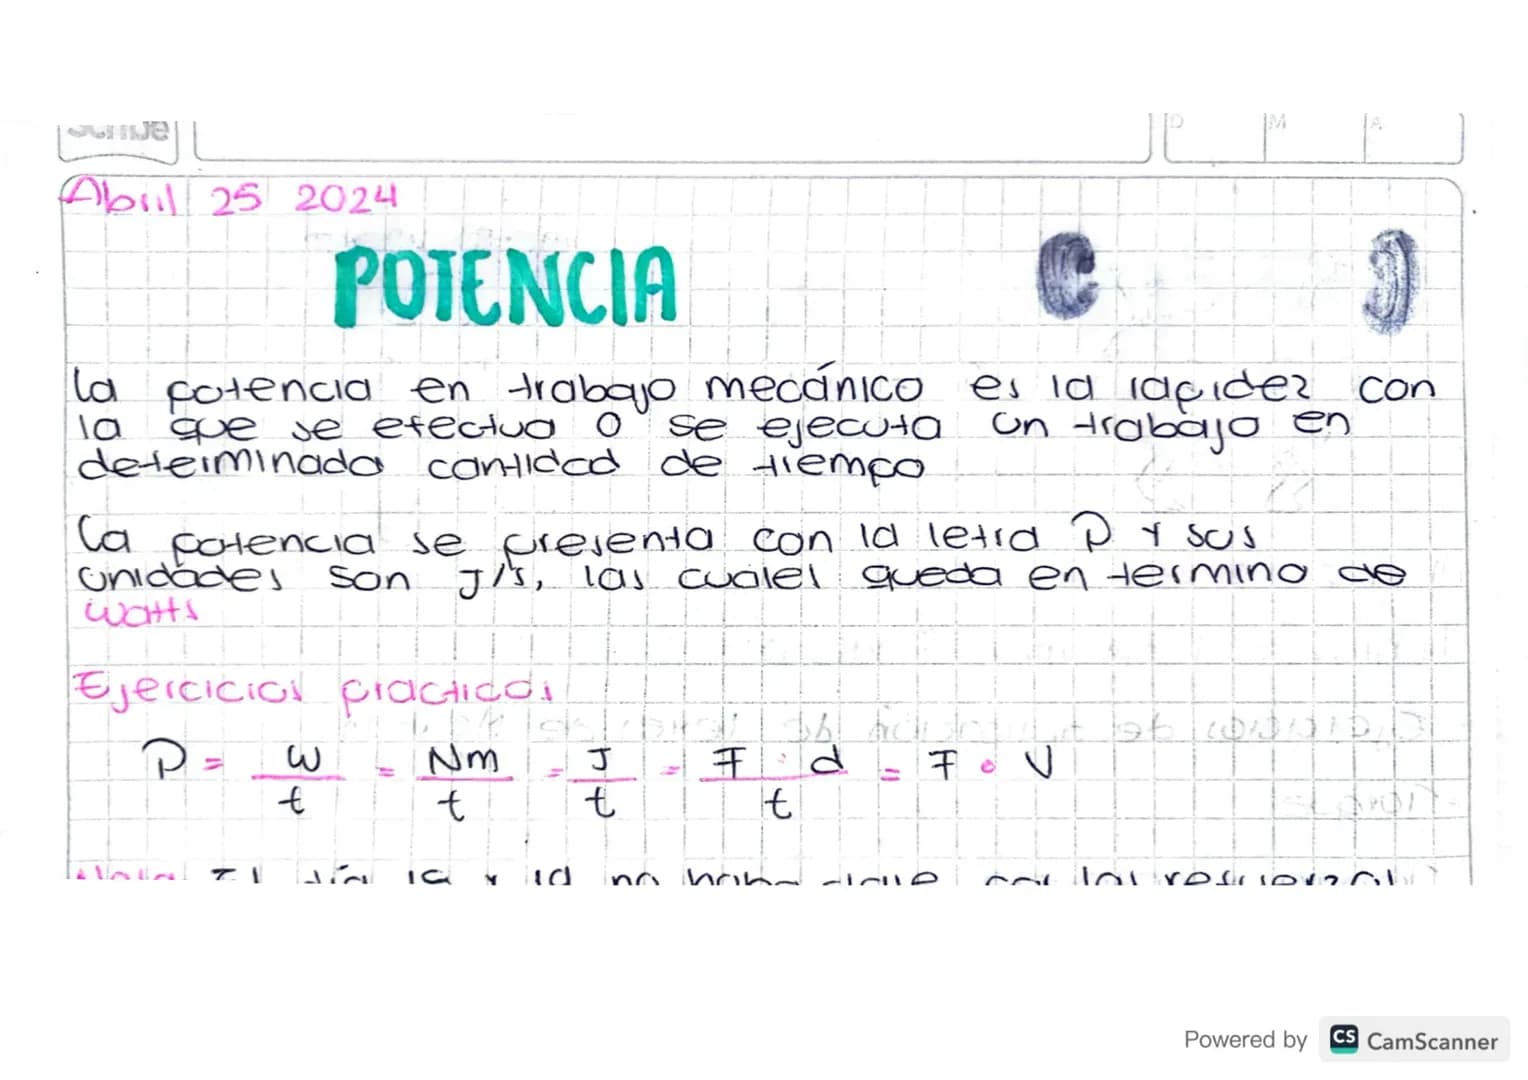 Scribe
D M A
Abril 25 2024
POTENCIA
La potencia en trabajo mecánico es la rapidez con
la que se efectua o se ejecuta un trabajo en
determinada cantidad de tiempo
La potencia se presenta con la letra P y sus
unidades son J/s, las cuales queda en termino de
Watts
Ejercicios practicos
P = W/t = Nm/t = J/t = F · d/t = F · V
Powered by CS CamScanner